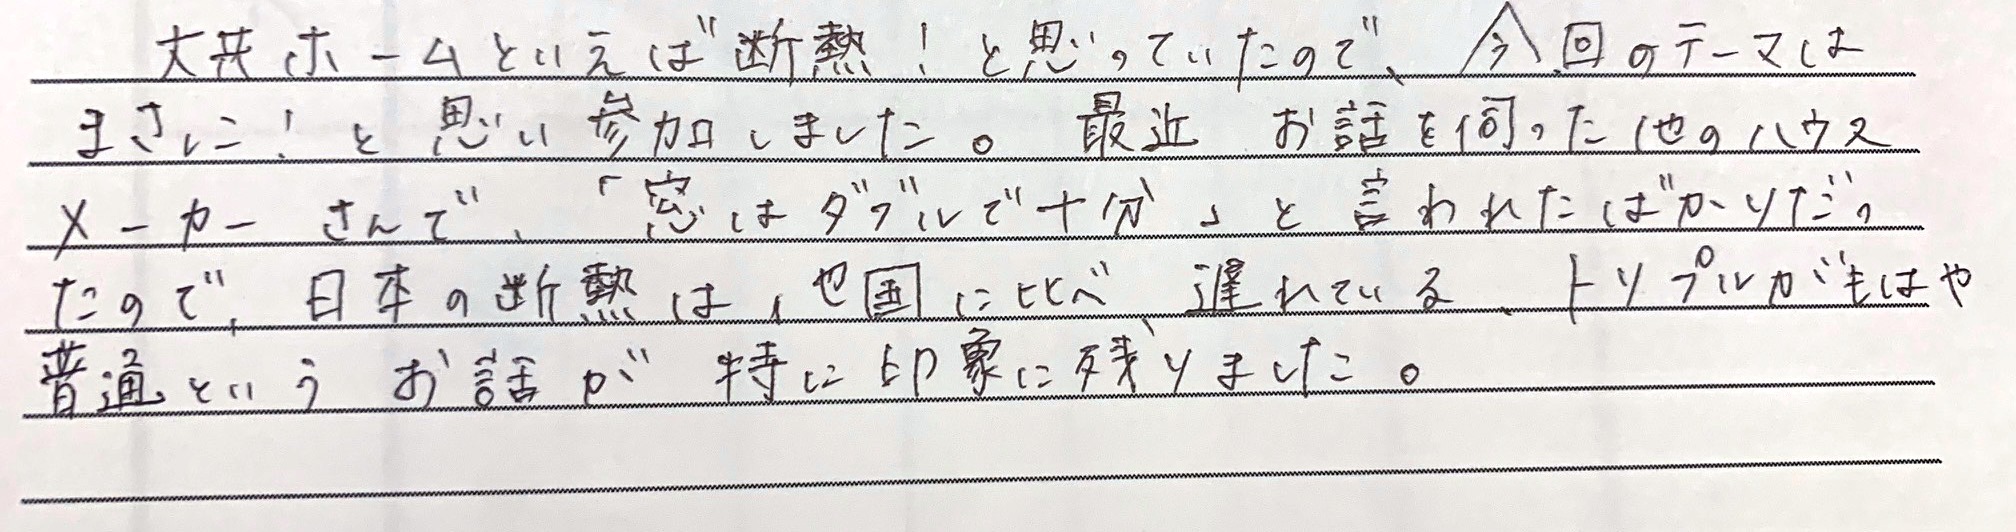 大共ホームといえば断熱！と思っていたので、今回のテーマは
まさに！と思い参加しました。最近 お話を伺った他のハウス
メーカーさんで、「窓はダブルで十分」と言われたばかりだっ
たので、日本の断熱は、他国に比べ遅れている、トリプルがもはや
普通というお話が特に印象に残りました。